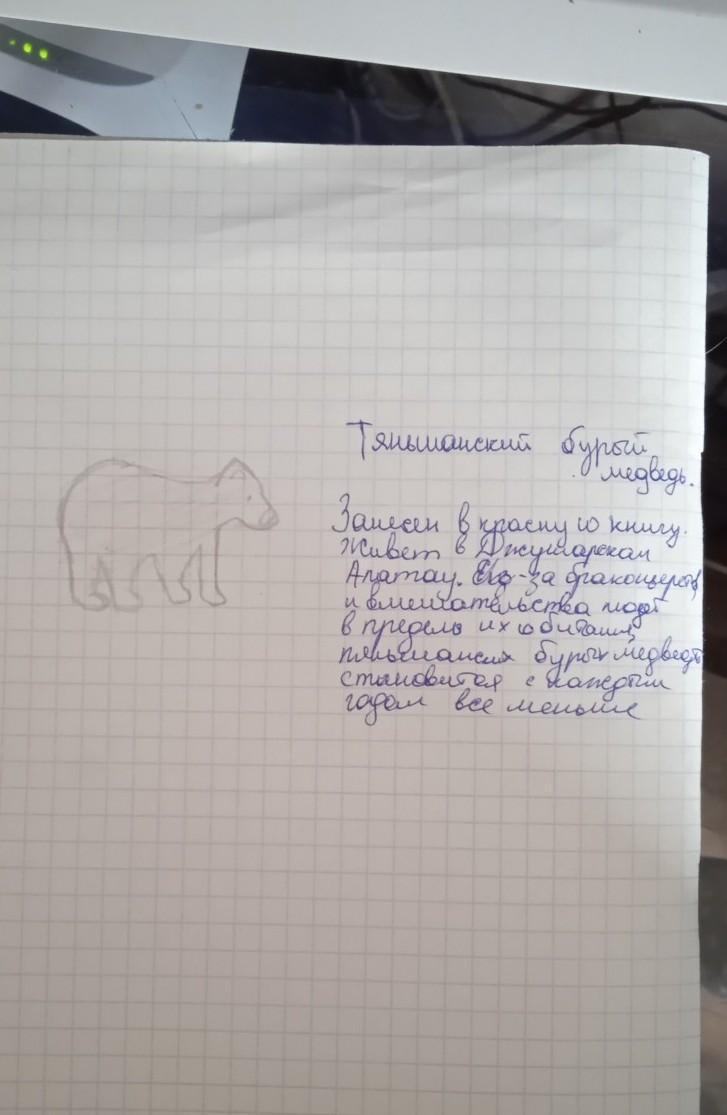 Тяньшанский бурый
медведь.
Занесен в красную книгу.
Живет в Джунгарском
Алатау. Из-за браконьеров
и вмешательства людей
в пределы их обитания,
тяньшанских бурых медведей
становится с каждым
годом все меньше